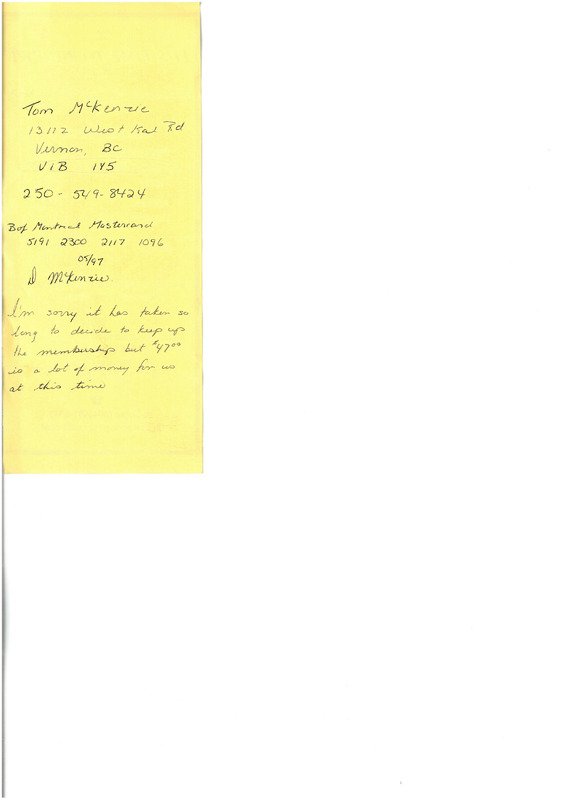 Tom McKenzie
13112 West Kal Rd
Vernon, BC
V1B 1Y5
250-549-8424
B of Montreal Mastercard
5191 2300 2117 1096
05/97
D McKenzie
I'm sorry it has taken so
long to decide to keep up
the membership but $47.00
is a lot of money for us
at this time